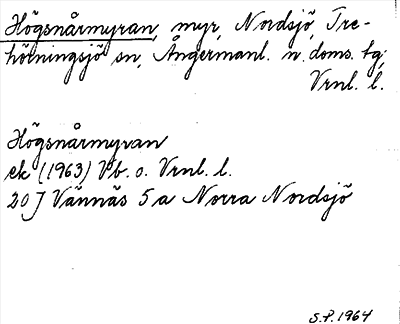 Högsnårmyran, myr, Nordsjö, Tre-
hörningsjö sn, Ångermanl. n. doms. tg,
Vrnl. l.
Högsnårmyran
ek (1963) Vb. o. Vrnl. l.
20 J Vännäs 5 a Norra Nordsjö
S.P. 1964